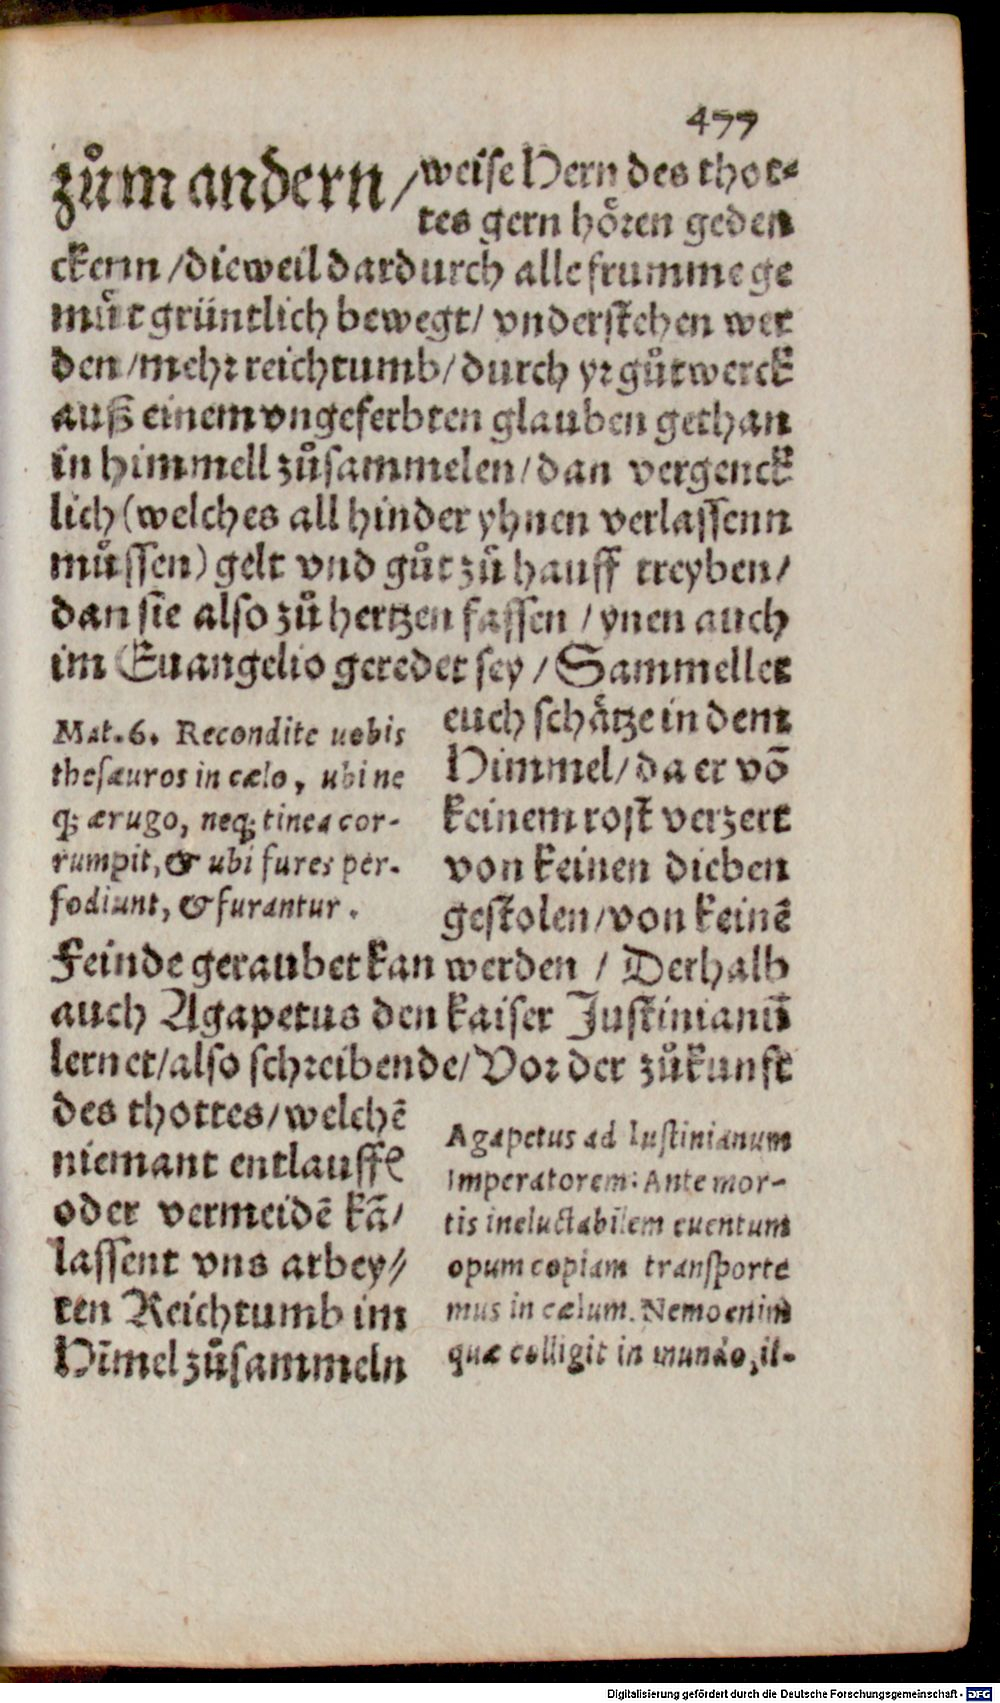 477
zům andern / weise Hern des thot⸗
tes gern hören geden
ckenn / dieweil dardurch alle frumme ge
müt grüntlich bewegt / vnderstehen wer
den / mehr reichtumb / durch yr gůtwerck
auß einem vngeferbten glauben gethan
in himmell zůsammelen / dan vergenck
lich (welches all hinder yhnen verlassenn
můssen) gelt vnd gůt zů hauff treyben /
dan sie also zů hertzen fassen / ynen auch
im Euangelio geredet sey / Sammellet
euch schätze in dem
Himmel / da er võ
keinem rost verzert
von keinen dieben
gestolen / von keinẽ
Mat. 6. Recondite uobis
thesæuros in cælo, ubi ne
q; ærugo, neq; tinea cor-
rumpit, & ubi fures per-
fodiunt, & furantur.
Feinde geraubet kan werden / Derhalb
auch Agapetus den kaiser Justinianũ
lernet / also schreibende / Vor der zůkunft
des thottes / welchẽ
niemant entlauffẽ
oder vermeidẽ kã /
lassent vns arbey⸗
ten Reichtumb im
Hĩmel zůsammeln
Agapetus ad Iustinianum
Imperatorem: Ante mor-
tis ineluctabilem euentum
opum copiam transporte
mus in cælum. Nemo enim
quæ colligit in mundo, il-
Digitalisierung gefördert durch die Deutsche Forschungsgemeinschaft - DFG